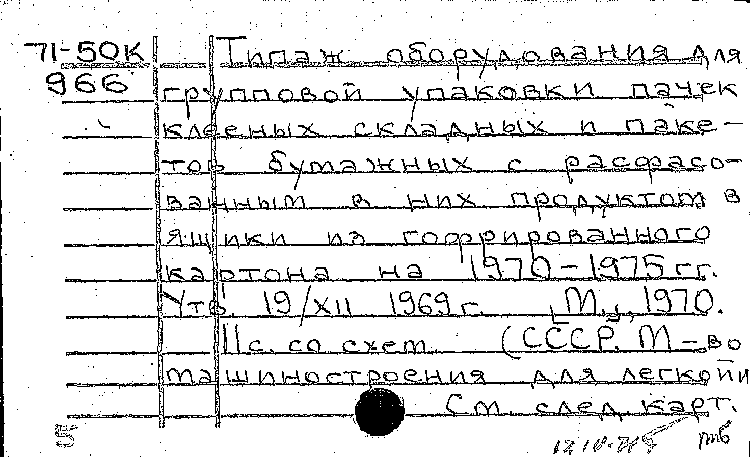 71-50К Типаж оборудования для
966 групповой упаковки пачек
клееных складных и паке-
тов бумажных с расфасо-
ванным в них продуктом в
ящики из гофрированного
картона на 1970-1975 гг.
Утв. 19/XII 1969 г. [М.], 1970.
11 с. со схем. (СССР. М-во
машиностроения для легкой и
См. след. карт.
5